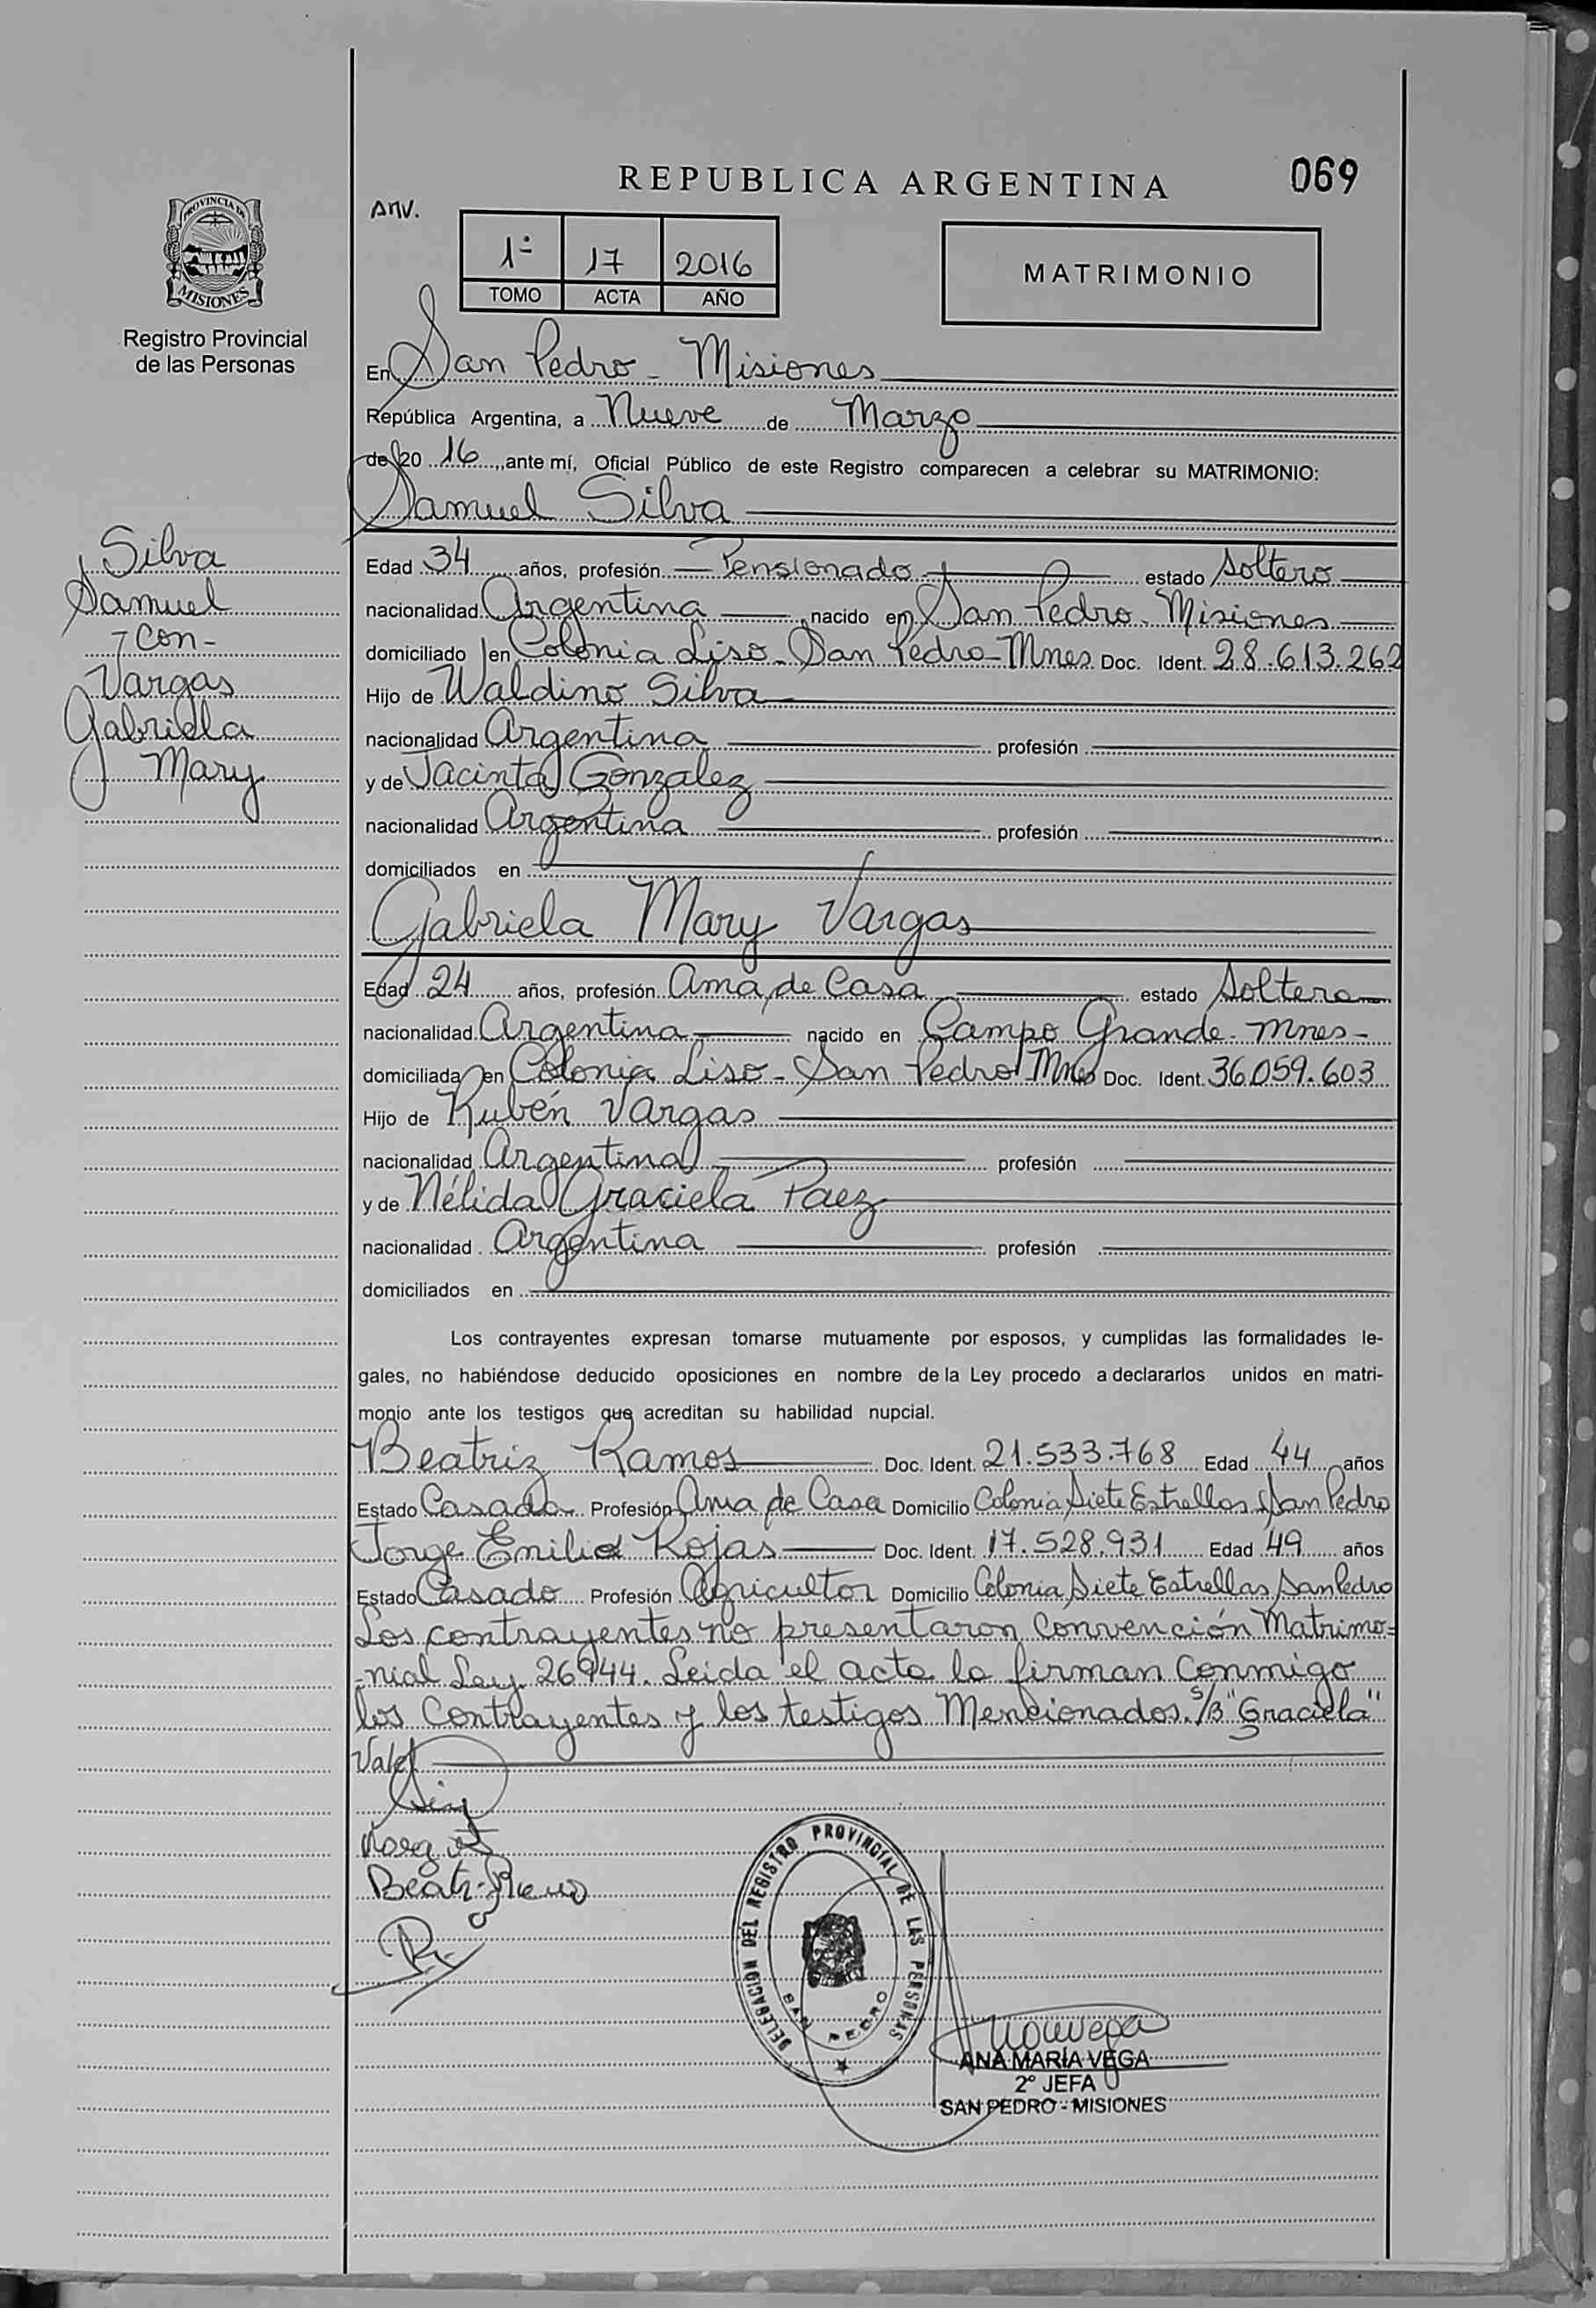 REPUBLICA ARGENTINA
069
Anv.
1º 17 2016
TOMO ACTA AÑO
MATRIMONIO
PROVINCIA DE
MISIONES
Registro Provincial
de las Personas
En San Pedro - Misiones
República Argentina, a Nueve de Marzo
de 20 16, ante mí, Oficial Público de este Registro comparecen a celebrar su MATRIMONIO:
Samuel Silva
Silva
Samuel
- con -
Vargas
Gabriela
Mary
Edad 34 años, profesión Pensionado estado Soltero
nacionalidad Argentina nacido en San Pedro - Misiones
domiciliado en Colonia Liso - San Pedro - Mnes Doc. Ident. 28.613.262
Hijo de Waldino Silva
nacionalidad Argentina profesión
y de Jacinta Gonzalez
nacionalidad Argentina profesión
domiciliados en
Gabriela Mary Vargas
Edad 24 años, profesión Ama de Casa estado Soltera
nacionalidad Argentina nacido en Campo Grande - Mnes -
domiciliada en Colonia Liso - San Pedro Mnes Doc. Ident. 36.059.603
Hijo de Rubén Vargas
nacionalidad Argentina profesión
y de Nélida Graciela Paez
nacionalidad Argentina profesión
domiciliados en
Los contrayentes expresan tomarse mutuamente por esposos, y cumplidas las formalidades le-
gales, no habiéndose deducido oposiciones en nombre de la Ley procedo a declararlos unidos en matri-
monio ante los testigos que acreditan su habilidad nupcial.
Beatriz Ramos Doc. Ident. 21.533.768 Edad 44 años
Estado Casada Profesión Ama de Casa Domicilio Colonia Siete Estrellas San Pedro
Jorge Emilio Rojas Doc. Ident. 17.528.931 Edad 49 años
Estado Casado Profesión Agricultor Domicilio Colonia Siete Estrellas San Pedro
Los contrayentes no presentaron Convención Matrimo-
-nial Ley 26944. Leida el acta la firman conmigo
los Contrayentes y los testigos Mencionados. S/B "Graciela"
Vale!
DELEGACION DEL REGISTRO PROVINCIAL DE LAS PERSONAS
SAN PEDRO
ANA MARÍA VEGA
2º JEFA
SAN PEDRO - MISIONES